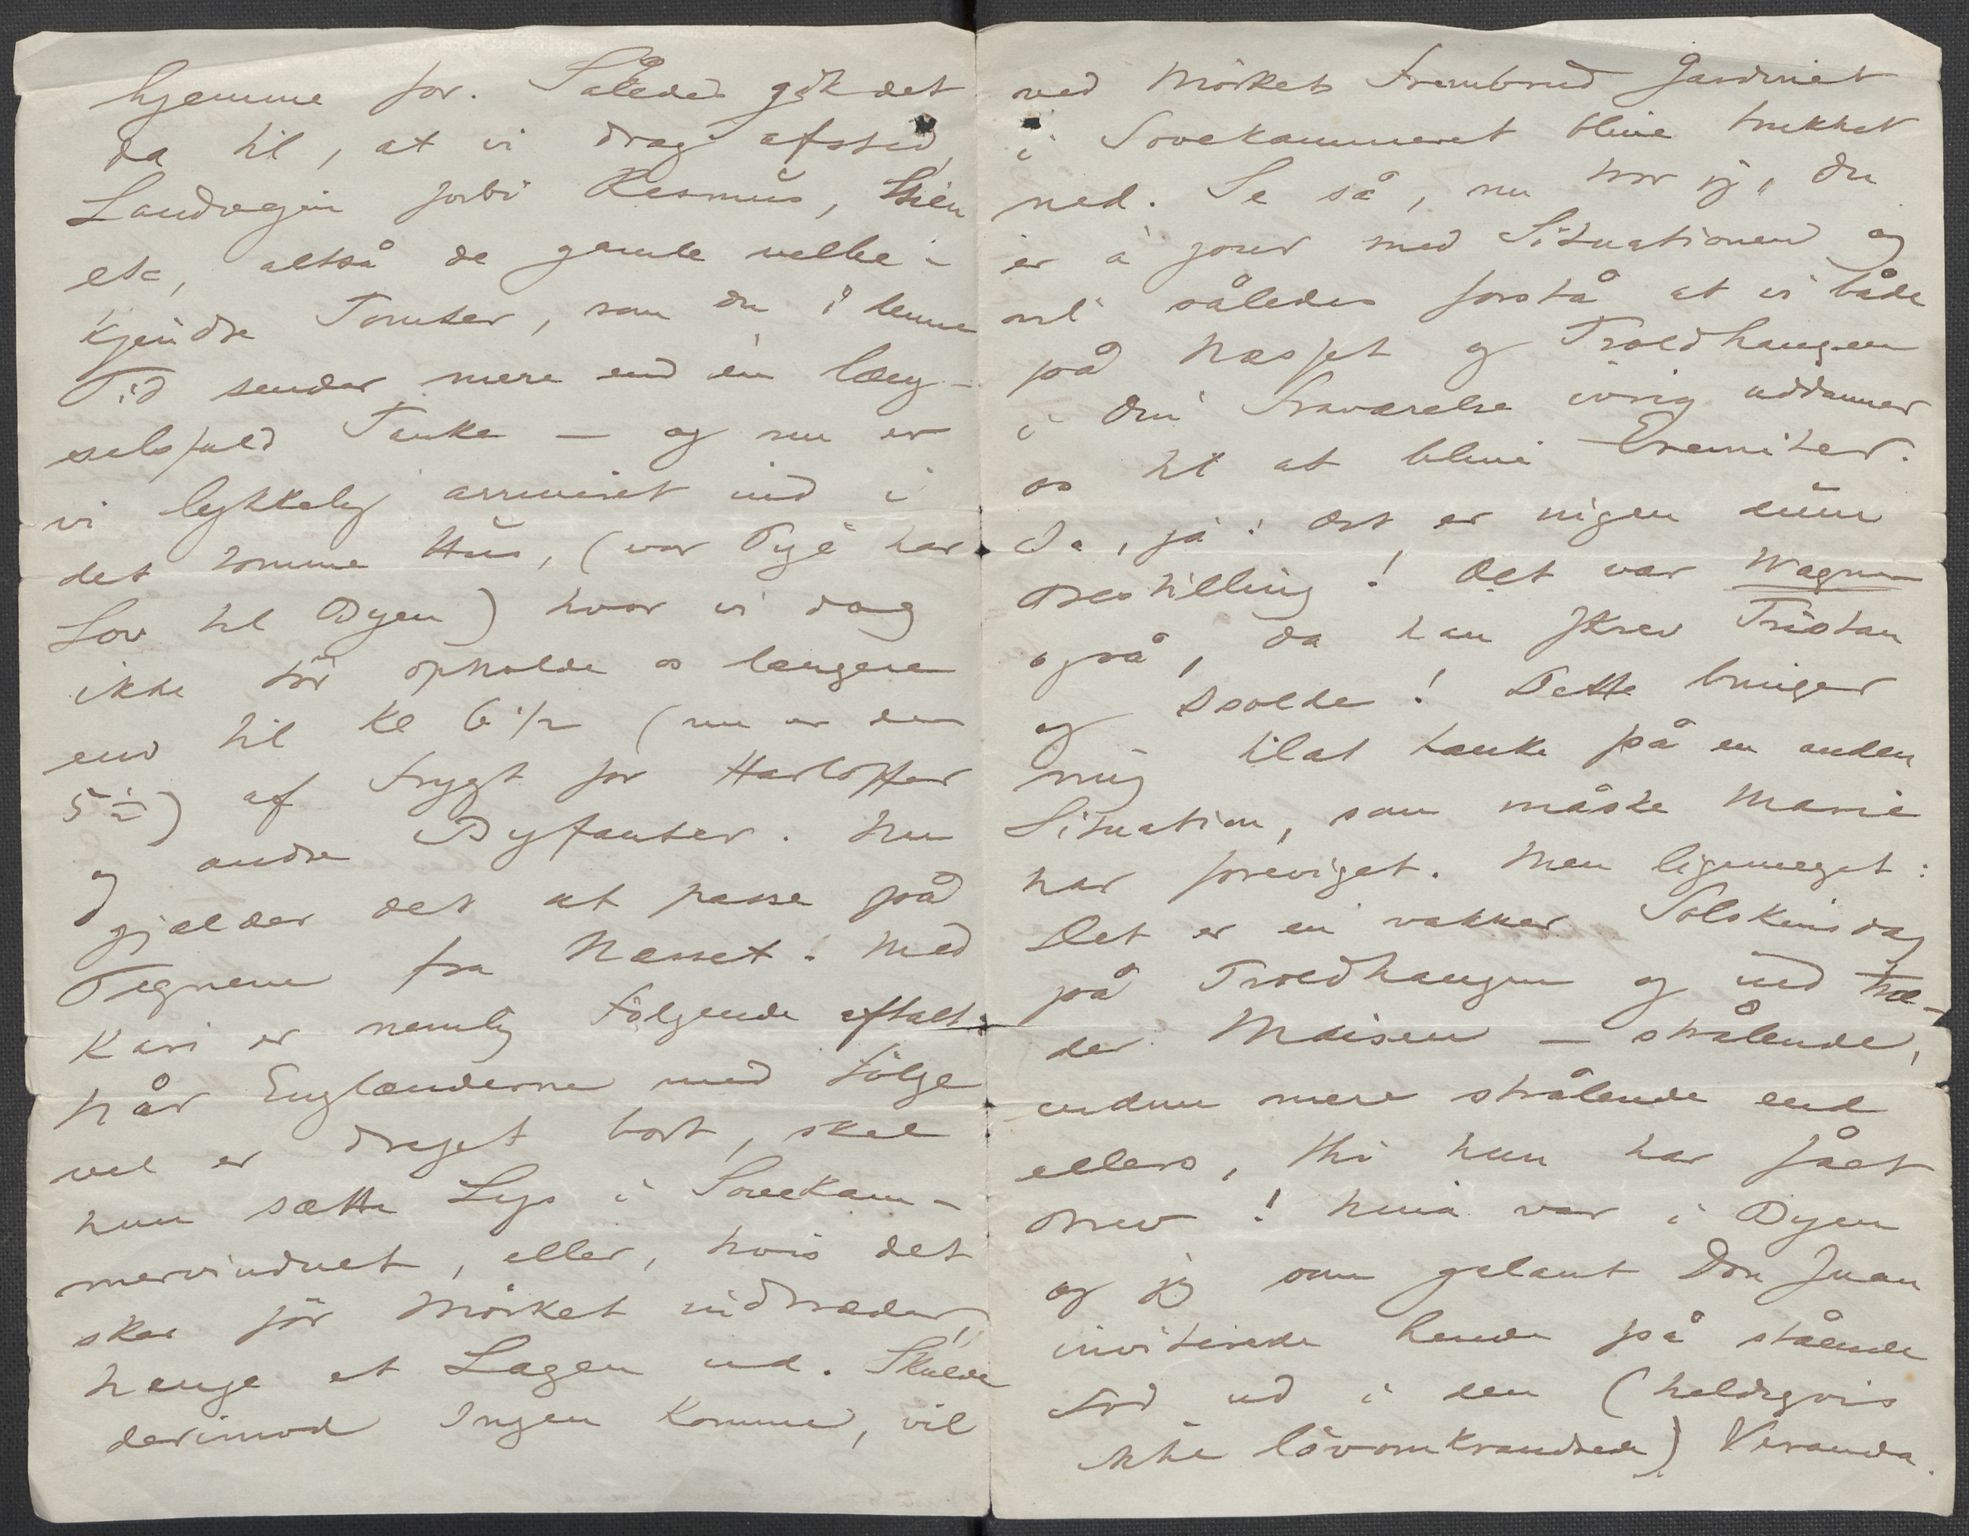 hjemme for. Således gik det
da til, at vi drog afsted,
Landvejen forbi Rasmus,
etc, altså de gamle velbe-
kjendte Tomter, som du i denne
Tid sender mere end én læng-
selsfuld Tanke — og nu er
vi lykkelig arriveret ind i
det tomme Hus, (vor Pige har
Lov til Byen) hvor vi dog
ikke tør opholde os længere
end til Kl 6 1/2 (nu er den
5 1/2) af Frygt for Harloffer
og andre Byfanter. Nu
gjælder det at passe på
Tegnene fra Næsset! Med
Kari er nemlig følgende aftalt:
Når Englænderne med Følge
vel er draget bort, skal
hun sætte Lys i Sovekam-
mervinduet, eller, hvis det
sker før Mørket indtræder,
hænge et Lagen ud. Skulde
derimod Ingen komme, vil
ved Mørkets Frembrud Gardinet
i Sovekammeret blive trukket
ned. Se så, nu tror jeg, du
er à jour med Situationen og
vil således forstå at vi både
på Næsset og Troldhaugen
i din Fraværelse ivrig uddanner
os til at blive Eremiter.
Ja, ja! Det er ingen
Bestilling! Det var Wagner
også, da han skrev Tristan
og Isolde! Dette bringer
mig til at tænke på en anden
Situation, som måske Marie
har foreviget. Men ligemeget:
Det er en vakker Solskinsdag
på Troldhaugen og ind træ-
der Maisen — strålende,
endnu mere strålende end
ellers, thi hun har fået
Brev! Nina var i Byen
og jeg som galant Don Juan
inviterede hende på stående
Fod ud i den (heldigvis
ikke løvomkrandsede) Veranda.